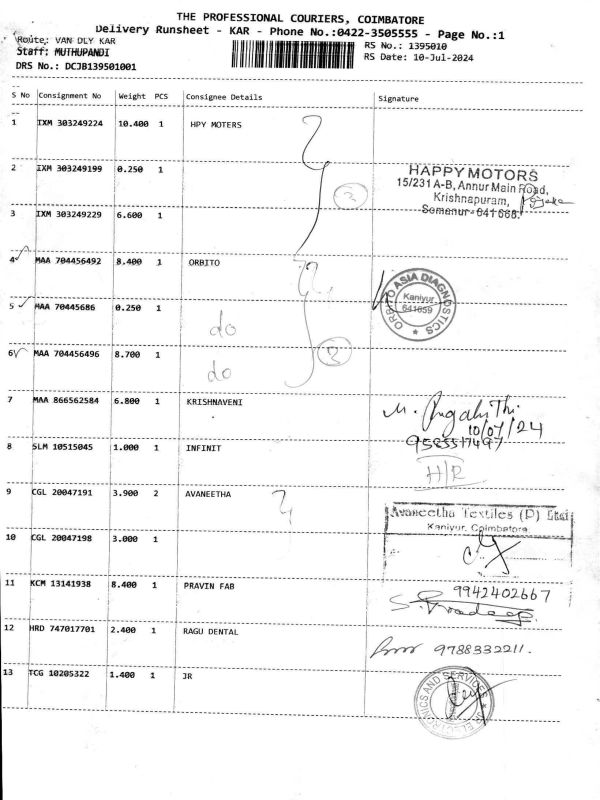 THE PROFESSIONAL COURIERS, COIMBATORE
Delivery Runsheet - KAR - Phone No.:0422-3505555 - Page No.:1
Route: VAN DLY KAR
RS No.: 1395010
Staff: MUTHUPANDI
RS Date: 10-Jul-2024
DRS No.: DCJB139501001
S No Consignment No Weight PCS Consignee Details Signature
1 IXM 303249224 10.400 1 HPY MOTERS
2 IXM 303249199 0.250 1
HAPPY MOTORS
15/231 A-B, Annur Main Road,
Krishnapuram,
Somanur-641 668.
3
3 IXM 303249229 6.600 1
4 MAA 704456492 8.400 1 ORBITO
ORBITO ASIA DIAGNOSTICS
Kaniyur
641659
5 MAA 70445686 0.250 1 do
3
6 MAA 704456496 8.700 1 do
7 MAA 866562584 6.800 1 KRISHNAVENI
10/07/24
8 SLM 10515045 1.000 1 INFINIT
H/R
9 CGL 20047191 3.900 2 AVANEETHA
Avaneetha Textiles (P) Ltd
Kaniyur, Coimbatore
10 CGL 20047198 3.000 1
11 KCM 13141938 8.400 1 PRAVIN FAB
9942402667
S. Pradeep
12 HRD 747017701 2.400 1 RAGU DENTAL
9788332211.
13 TCG 10205322 1.400 1 JR
ELECTRONICS AND SERVICES